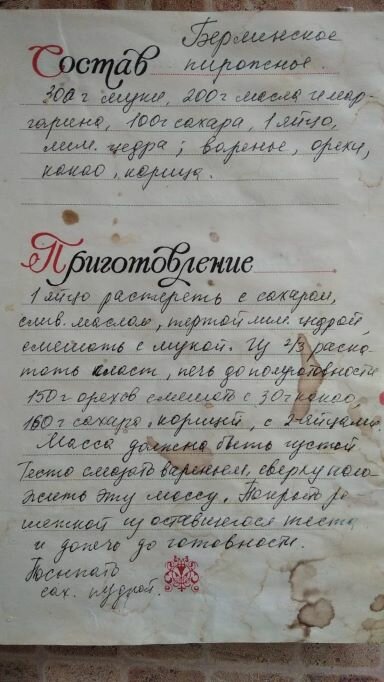 Берлинское
Состав пирожное.
300 г муки, 200 г масла и мар-
гарина, 100 г сахара, 1 яйцо,
лим. цедра; варенье, орехи,
какао, корица.
Приготовление
1 яйцо растереть с сахаром,
слив. маслом, тертой лим. цедрой,
смешать с мукой. Из 2/3 раска-
тать пласт, печь до полуготовности
150 г орехов смешать с 30 г какао,
160 г сахара, корицей, с 2 яйцами
Масса должна быть густой
Тесто смазать вареньем, сверху поло-
жить эту массу. Покрыть ре
шеткой из оставшегося теста
и допечь до готовности.
Посыпать
сах. пудрой.